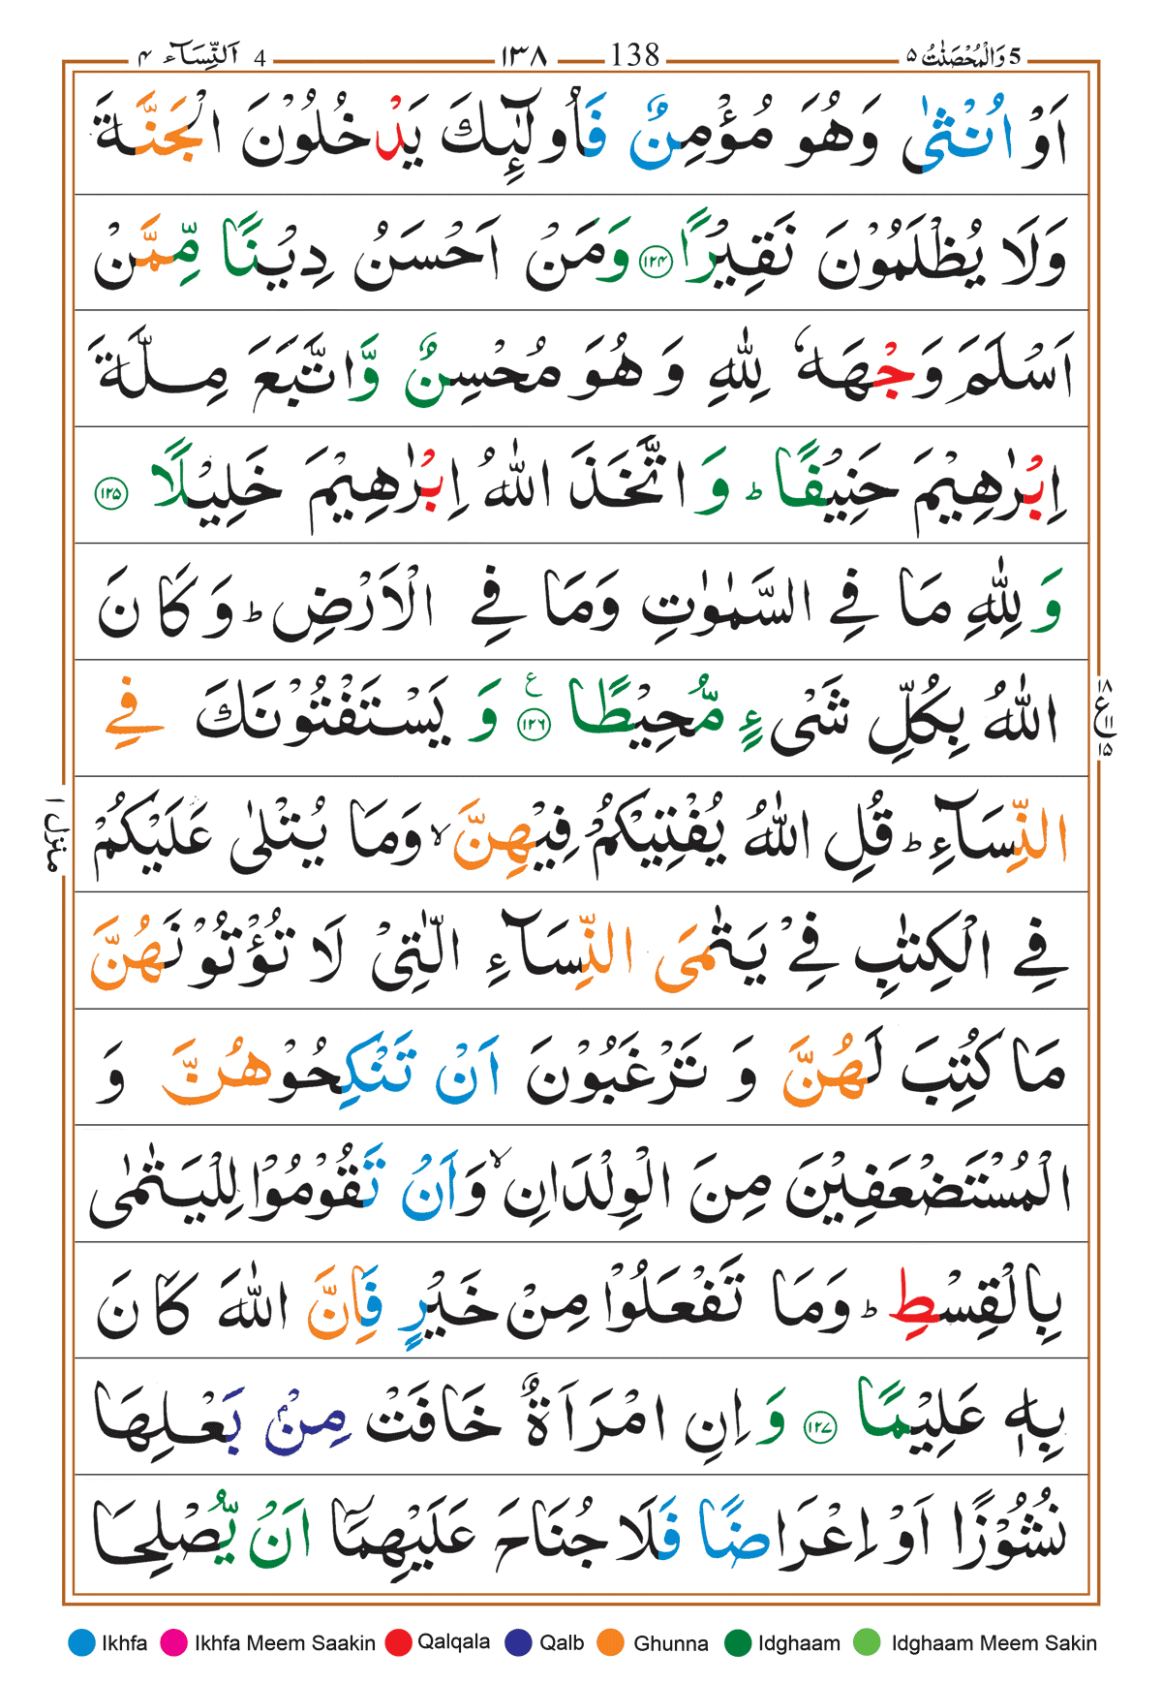 5 وَالْمُحْصَنٰتُ ۵ 138 ۱۳۸ 4 اَلنِّسَآء ۴
اَوْ اُنْثٰى وَهُوَ مُؤْمِنٌ فَاُولٰٓئِكَ يَدْخُلُوْنَ الْجَنَّةَ
وَلَا يُظْلَمُوْنَ نَقِيْرًا ۱۲۴ وَمَنْ اَحْسَنُ دِيْنًا مِّمَّنْ
اَسْلَمَ وَجْهَهٗ لِلّٰهِ وَهُوَ مُحْسِنٌ وَّاتَّبَعَ مِلَّةَ
اِبْرٰهِيْمَ حَنِيْفًا ؕ وَاتَّخَذَ اللّٰهُ اِبْرٰهِيْمَ خَلِيْلًا ۱۲۵
وَلِلّٰهِ مَا فِي السَّمٰوٰتِ وَمَا فِي الْاَرْضِ ؕ وَكَانَ
اللّٰهُ بِكُلِّ شَىْءٍ مُّحِيْطًا ۱۲۶ ع وَيَسْتَفْتُوْنَكَ فِي
۱۸ ع ۱۱ ۱۵
النِّسَآءِ ؕ قُلِ اللّٰهُ يُفْتِيْكُمْ فِيْهِنَّ ۙ وَمَا يُتْلٰى عَلَيْكُمْ
منزل ۱
فِي الْكِتٰبِ فِيْ يَتٰمَى النِّسَآءِ الّٰتِيْ لَا تُؤْتُوْنَهُنَّ
مَا كُتِبَ لَهُنَّ وَتَرْغَبُوْنَ اَنْ تَنْكِحُوْهُنَّ وَ
الْمُسْتَضْعَفِيْنَ مِنَ الْوِلْدَانِ ۙ وَاَنْ تَقُوْمُوْا لِلْيَتٰمٰى
بِالْقِسْطِ ؕ وَمَا تَفْعَلُوْا مِنْ خَيْرٍ فَاِنَّ اللّٰهَ كَانَ
بِهٖ عَلِيْمًا ۱۲۷ وَاِنِ امْرَاَةٌ خَافَتْ مِنْۢ بَعْلِهَا
نُشُوْزًا اَوْ اِعْرَاضًا فَلَا جُنَاحَ عَلَيْهِمَاۤ اَنْ يُّصْلِحَا
Ikhfa Ikhfa Meem Saakin Qalqala Qalb Ghunna Idghaam Idghaam Meem Sakin